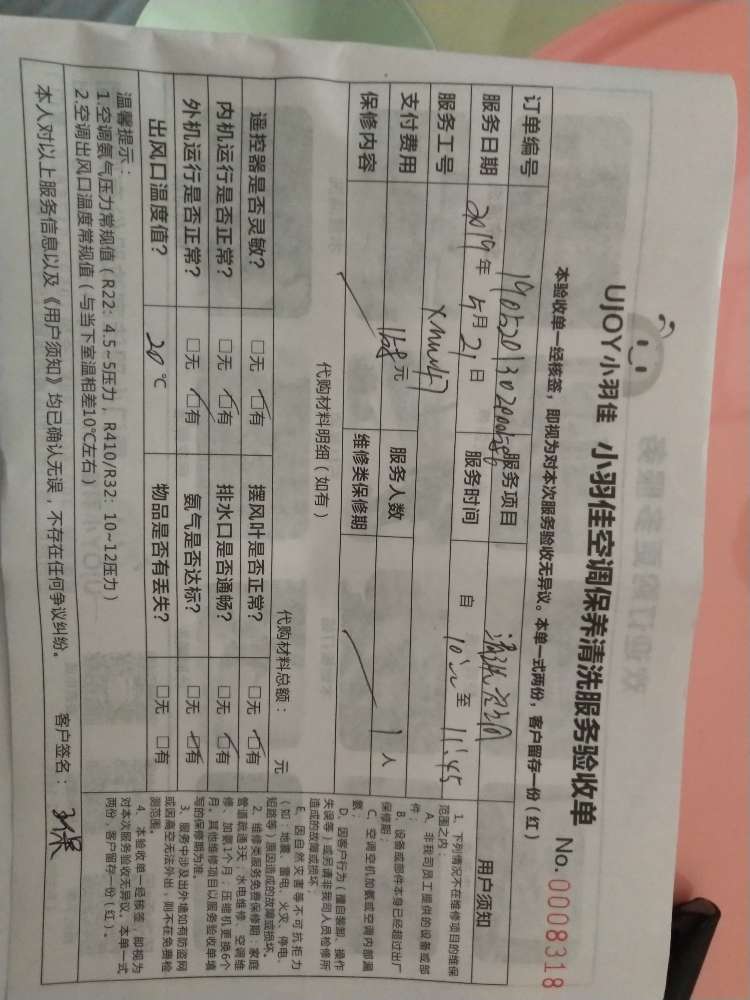 UJOY小羽佳 小羽佳空调保养清洗服务验收单 No.0008318
本验收单一经核签，即视为对本次服务验收无异议。本单一式两份，客户留存一份（红）
订单编号 服务项目
服务日期 2019年5月21日 服务时间 自 至 11:45
服务工号
支付费用 158元 服务人数 1人
保修内容 维修类保修期
代购材料明细（如有）
代购材料总额： 元
遥控器是否灵敏？ □无 □有 摆风叶是否正常？ □无 □有
内机运行是否正常？ □无 □有 排水口是否通畅？ □无 □有
外机运行是否正常？ □无 □有 氨气是否达标？ □无 □有
出风口温度值？ 20℃ 物品是否有丢失？ □无 □有
温馨提示：
1.空调氨气压力常规值（R22：4.5~5压力，R410/R32：10~12压力）
2.空调出风口温度常规值（与当下室温相差10℃左右）
本人对以上服务信息以及《用户须知》均已确认无误，不存在任何争议纠纷。 客户签名：
用户须知
1、下列情况不在维修项目的维保
范围之内：
A、非我司员工提供的设备或部
件；
B、设备或部件本身已经超过出厂
保修期；
C、空调空机加氨或空调内部漏
氨；
D、因客户行为（擅自装卸、操作
失误等）或另请非我司人员检修所
造成的故障或损坏；
E、因自然灾害等不可抗拒力
（如：地震、雷电、火灾、停电、
短路等）原因造成的故障或损坏。
2、维修类服务免费保修期：家庭
管道疏通3天，水电维修、空调维
修、加氨1个月；压缩机更换6个
月，其他维修项目以服务验收单填
写的保修期为准。
3、服务中涉及出外墙如有防盗网
或因高空无法外出，则不在免费检
测范围。
4、本验收单一经核签，即视为
对本次服务验收无异议。本单一式
两份，客户留存一份（红）。